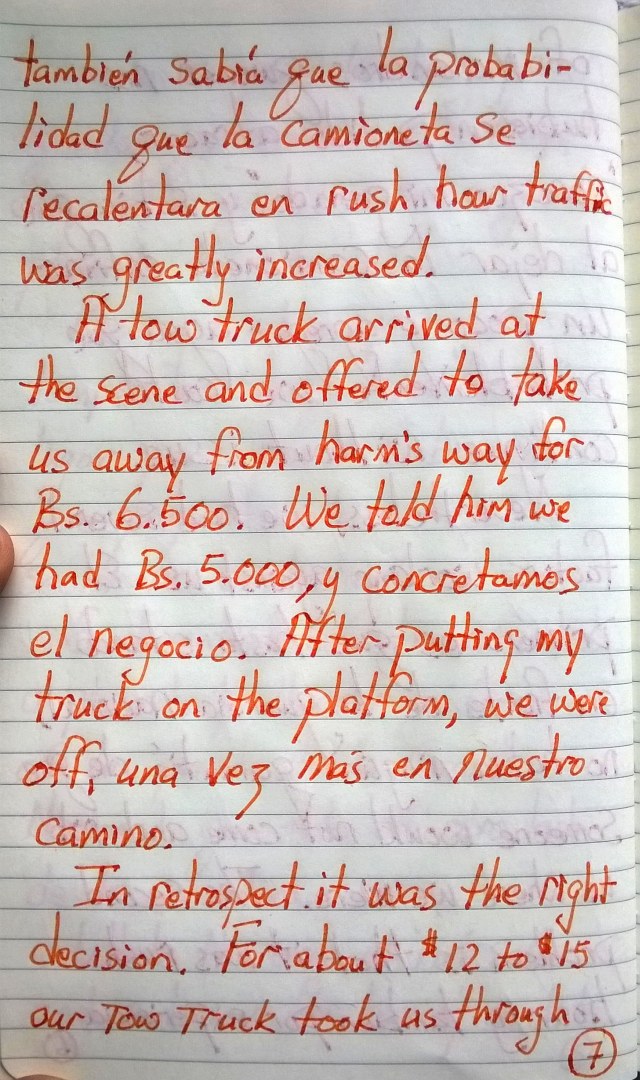 también sabía que la probabi-
lidad que la camioneta se
recalentara en rush hour traffic
was greatly increased.
A tow truck arrived at
the scene and offered to take
us away from harm's way for
Bs. 6.500. We told him we
had Bs. 5.000, y concretamos
el negocio. After putting my
truck on the platform, we were
off, una vez más en nuestro
camino.
In retrospect it was the right
decision. For about $12 to $15
our Tow Truck took us through
7